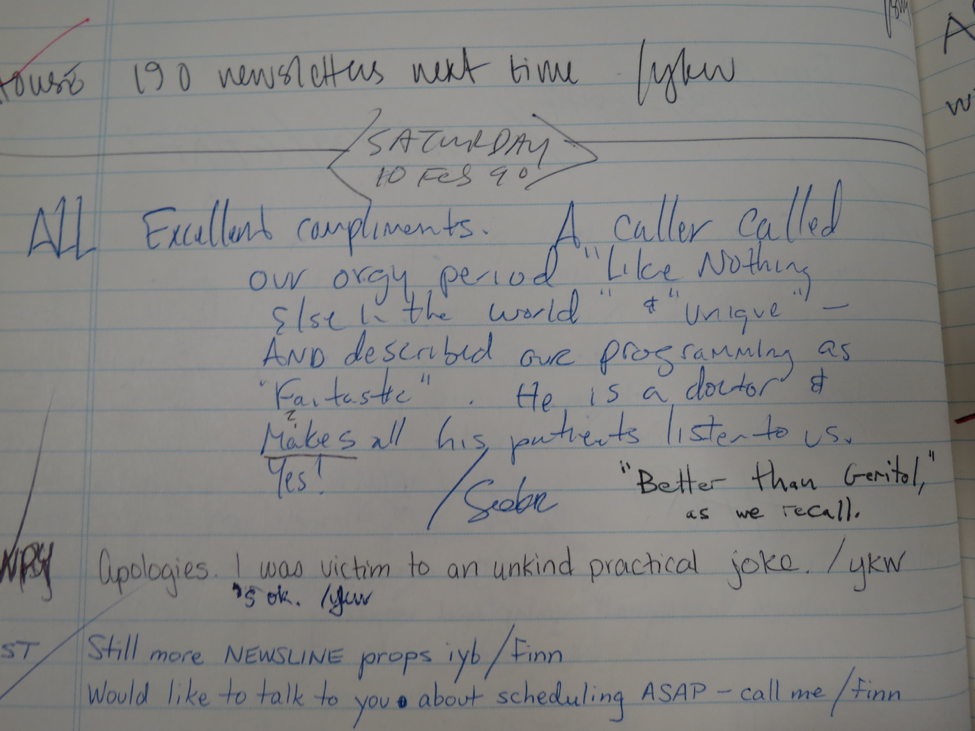 House 190 newsletters next time /ykw
SATURDAY
10 FEB 90
ALL Excellent compliments. A caller called
our orgy period "Like Nothing
Else in the world" & "Unique" —
AND described our programming as
"Fantastic". He is a doctor &
Makes all his patients listen to us.
Yes!
"Better than Geritol,"
as we recall.
Apologies. I was victim to an unkind practical joke. /ykw
'S ok. /ykw
ST Still more NEWSLINE props iyb/Finn
Would like to talk to you about scheduling ASAP - call me /Finn